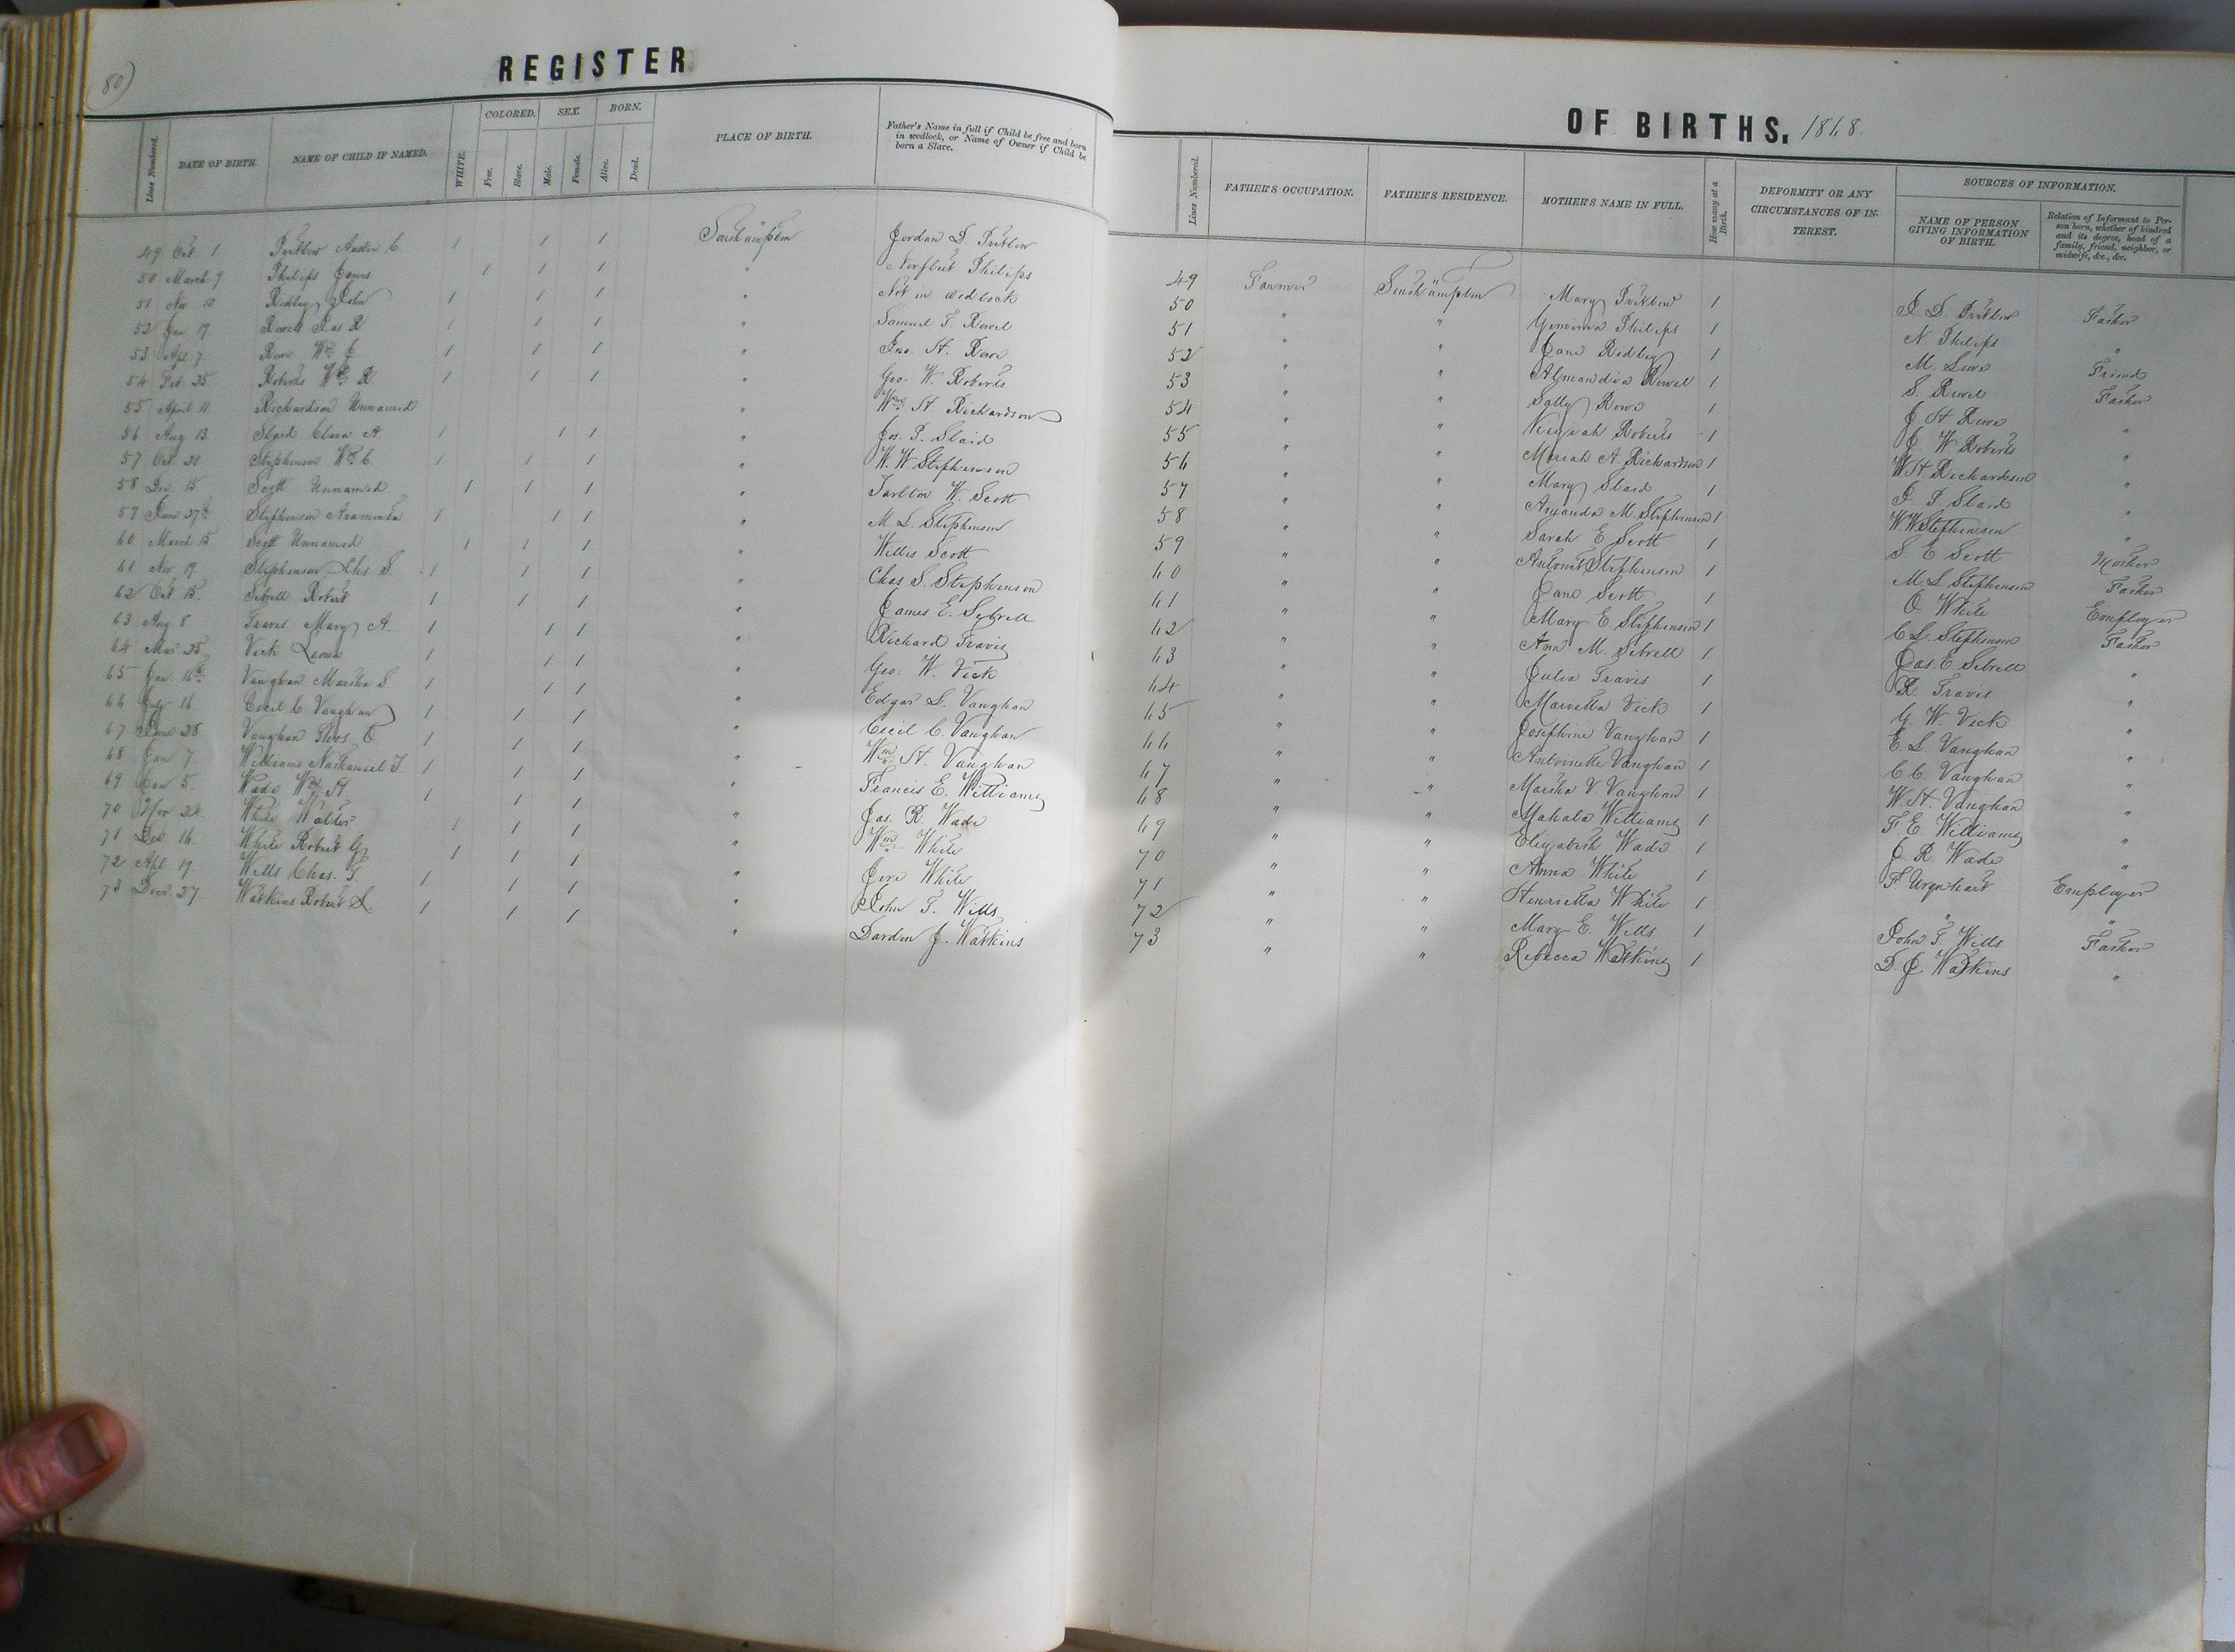 80)
REGISTER
Lines Numbered. DATE OF BIRTH. NAME OF CHILD IF NAMED. WHITE. COLORED. Free. Slave. SEX. Male. Female. BORN. Alive. Dead. PLACE OF BIRTH. Father's Name in full if Child be free and born in wedlock, or Name of Owner if Child be born a Slave.
49 Oct. 1 Pretlow 1 1 1 Southampton Jordan D. Pretlow
50 March 9 Philips James 1 1 1 " Norfleet Philips
51 Nov 10 Ridley John 1 1 1 " Not in wedlock
52 Jan 19 Rowel Jas R 1 1 1 " Samuel T. Rowel
53 Apl 7 Rowe Wm J 1 1 1 " Jno. H. Rowe
54 Feb 25 Roberts Wm R 1 1 1 " Geo. W. Roberts
55 April 11 Richardson Unnamed " Wm H. Richardson
56 Aug 13 Slaid Clara A 1 1 1 " Jos. P. Slaid
57 Oct 20 Stephenson Wm C. 1 1 1 " W. W Stephenson
58 Dec 15 Scott Unnamed 1 1 1 " Tarlton W. Scott
59 June 27th Stephenson Araminta 1 1 1 " M L. Stephenson
60 March 15 Scott Unnamed 1 1 1 " Willis Scott
61 Nov 19 Stephenson Chs. S. 1 1 1 " Chas S. Stephenson
62 Oct 15. Sebrell Robert 1 1 1 " James E. Sebrell
63 Aug 8 Travis Mary A. 1 1 1 " Richard Travis
64 Mar 25 Vick Leona 1 1 1 " Geo. W. Vick
65 Jan 16th Vaughan Martha S 1 1 1 " Edgar L. Vaughan
66 July 16 Cecil C. Vaughan 1 1 1 " Cecil C. Vaughan
67 June 28 Vaughan Thos. O. 1 1 1 " Wm H. Vaughan
68 Jan 7 Williams Nathaniel T. 1 1 1 " Francis E. Williams
69 Jan 5. Wade Wm H. 1 1 1 " Jas. R. Wade
70 Nov 24 White Walter 1 1 1 " Wm White
71 Dec 16. White Robert G 1 1 1 " Jere White
72 Apl 19. Wills Chas. T. 1 1 1 " John T. Wills
73 Decr 27. Watkins Robert L. 1 1 1 " Darden J. Watkins
OF BIRTHS. 1868.
Lines Numbered. FATHER'S OCCUPATION. FATHER'S RESIDENCE. MOTHER'S NAME IN FULL. How many at a Birth. DEFORMITY OR ANY CIRCUMSTANCES OF INTEREST. SOURCES OF INFORMATION. NAME OF PERSON GIVING INFORMATION OF BIRTH. Relation of Informant to Person born, whether of kindred and its degree, head of a family, friend, neighbor, or midwife, &c., &c.
49 Farmer Southampton Mary Pretlow 1 J D. Pretlow Father
50 " " Gemima Philips 1 N. Philips "
51 " " Jane Ridley 1 M. Friend
52 " " Rowel 1 S. Rowel Father
53 " " Sally Rowe 1 J H Rowe "
54 " " Roberts 1 J W Roberts "
55 " " Mariah A Richardson 1 W H. Richardson "
56 " " Mary Slaid 1 J. P Slaid "
57 " " Amanda M. Stephenson 1 W W Stephenson "
58 " " Sarah E Scott 1 S E Scott Mother
59 " " Stephenson 1 M. L Stephenson Father
60 " " Jane Scott 1 O. White Employer
61 " " Mary E. Stephenson 1 C S. Stephenson Father
62 " " Ann M. Sebrell 1 Jas. E Sebrell "
63 " " Julia Travis 1 R. Travis "
64 " " Marietta Vick 1 G. W. Vick "
65 " " Josephine Vaughan 1 E. L. Vaughan "
66 " " Antoinette Vaughan 1 C C. Vaughan "
67 " " Martha V. Vaughan 1 W. H. Vaughan "
68 " " Mahala Williams 1 F E. Williams "
69 " " Elizabeth Wade 1 J. R Wade "
70 " " Anna White 1 F Urquhart Employer
71 " " Henrietta White 1 " "
72 " " Mary E. Wills 1 John T. Wills Father
73 " " Rebecca Watkins 1 D. J. Watkins "